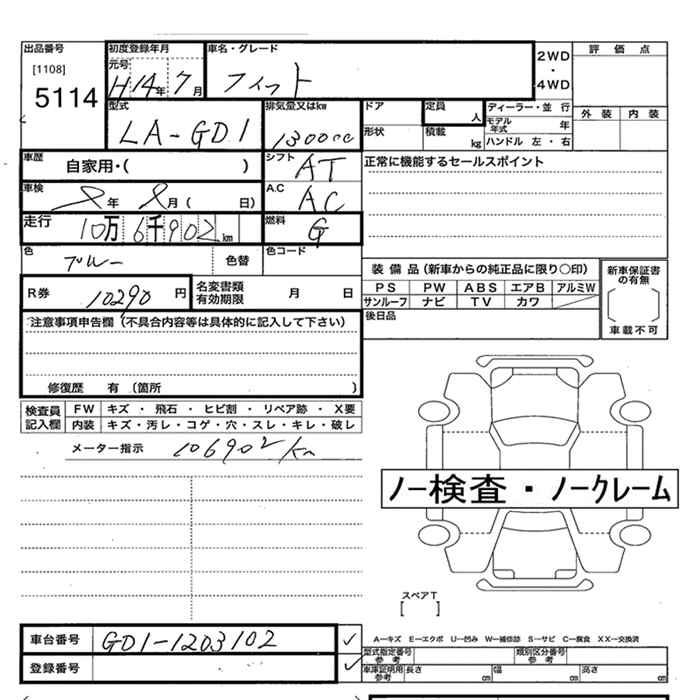 出品番号
[1108]
5114
初度登録年月
元号
H14年7月
車名・グレード
フィット
2WD
・
4WD
評価点
外装 内装
型式
LA-GD1
排気量又はkw
1300cc
ドア
形状
定員
人
積載
kg
ディーラー・並行
モデル年式 年
ハンドル 左・右
車歴
自家用・( )
シフト
AT
正常に機能するセールスポイント
車検
年 月( 日)
A.C
AC
走行
10万6千902km
燃料
G
色
ブルー
色替
色コード
R券
10290円
名変書類
有効期限
月 日
装備品(新車からの純正品に限り○印)
PS PW ABS エアB アルミW
サンルーフ ナビ TV カワ
新車保証書
の有無
[ ]
車載不可
後日品
注意事項申告欄(不具合内容等は具体的に記入して下さい)
修復歴 有(箇所 )
検査員
記入欄
FW キズ・飛石・ヒビ割・リペア跡・X要
内装 キズ・汚レ・コゲ・穴・スレ・キレ・破レ
メーター指示 106902km
ノー検査・ノークレーム
スペアT
[ ]
車台番号 GD1-1203102 ✓
登録番号 ✓
A—キズ E—エクボ U—凹み W—補修跡 S—サビ C—腐食 XX—交換済
型式指定番号
参考
類別区分番号
参考
車庫証明用
参考
長さ cm 幅 cm 高さ cm